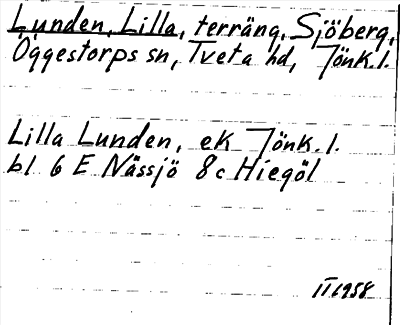 Lunden, Lilla, terräng, Sjöberg,
Öggestorps sn, Tveta hd, Jönk. l.
Lilla Lunden, ek Jönk. l.
bl 6 E Nässjö 8c Hiegöl
II 1958